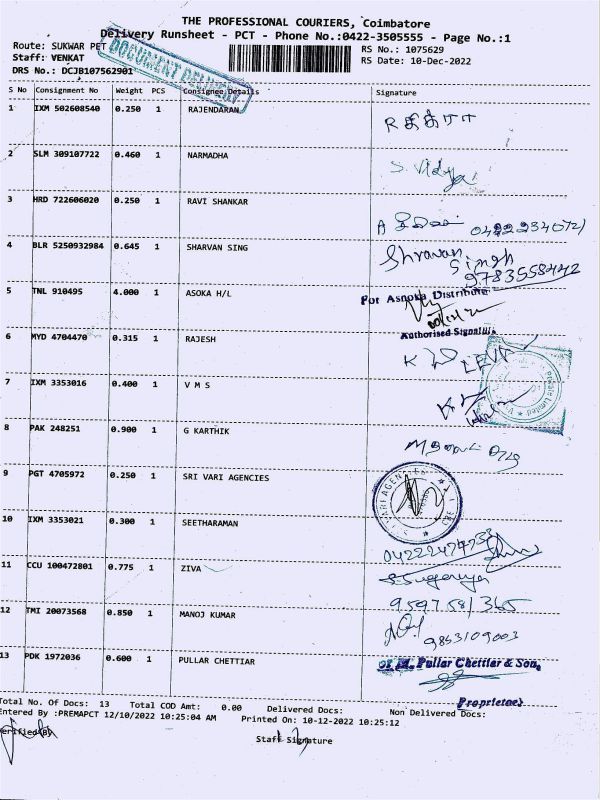 THE PROFESSIONAL COURIERS, Coimbatore
Delivery Runsheet - PCT - Phone No.:0422-3505555 - Page No.:1
Route: SUKWAR PET
RS No.: 1075629
Staff: VENKAT
RS Date: 10-Dec-2022
DRS No.: DCJB107562901
DOCUMENT DELIVERY
S No Consignment No Weight PCS Consignee Details Signature
1 IXM 502608540 0.250 1 RAJENDARAN
2 SLM 309107722 0.460 1 NARMADHA S. Vidya
3 HRD 722606020 0.250 1 RAVI SHANKAR
4 BLR 5250932984 0.645 1 SHARVAN SING Shravan Singh
9783558442
5 TNL 910495 4.000 1 ASOKA H/L For Ashoka Distribute
Authorised Signatu
6 MYD 4704470 0.315 1 RAJESH
7 IXM 3353016 0.400 1 V M S
8 PAK 248251 0.900 1 G KARTHIK
9 PGT 4705972 0.250 1 SRI VARI AGENCIES
10 IXM 3353021 0.300 1 SEETHARAMAN
11 CCU 100472801 0.775 1 ZIVA S. Suganya
9597581365
12 TMI 20073568 0.850 1 MANOJ KUMAR
9853109003
13 PDK 1972036 0.600 1 PULLAR CHETTIAR M. Pullar Chettiar & Son,
Proprietor
Total No. Of Docs: 13 Total COD Amt: 0.00 Delivered Docs: Non Delivered Docs:
Entered By :PREMAPCT 12/10/2022 10:25:04 AM Printed On: 10-12-2022 10:25:12
Verified By
Staff Signature